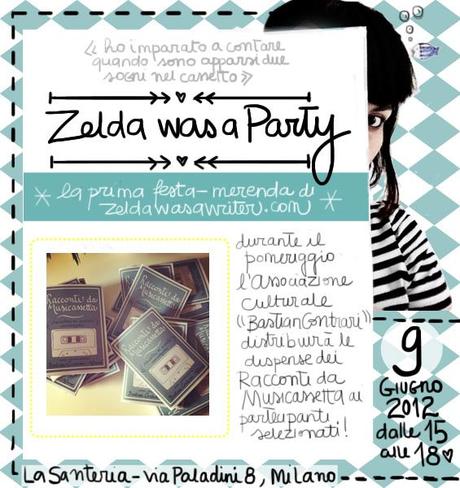 « ho imparato a contare
quando sono apparsi due
sogni nel cassetto »
Zelda was a Party
la prima festa-merenda di
zeldawasawriter.com
durante il
pomeriggio
l'Associazione
Culturale
"BastianContrari"
distribuirà le
dispense dei
Racconti da
Musicassetta ai
partecipanti
selezionati!
Racconti da
Musicassetta
9
GIUGNO
2012
dalle 15
alle 18
La Santeria - via Paladini 8, Milano